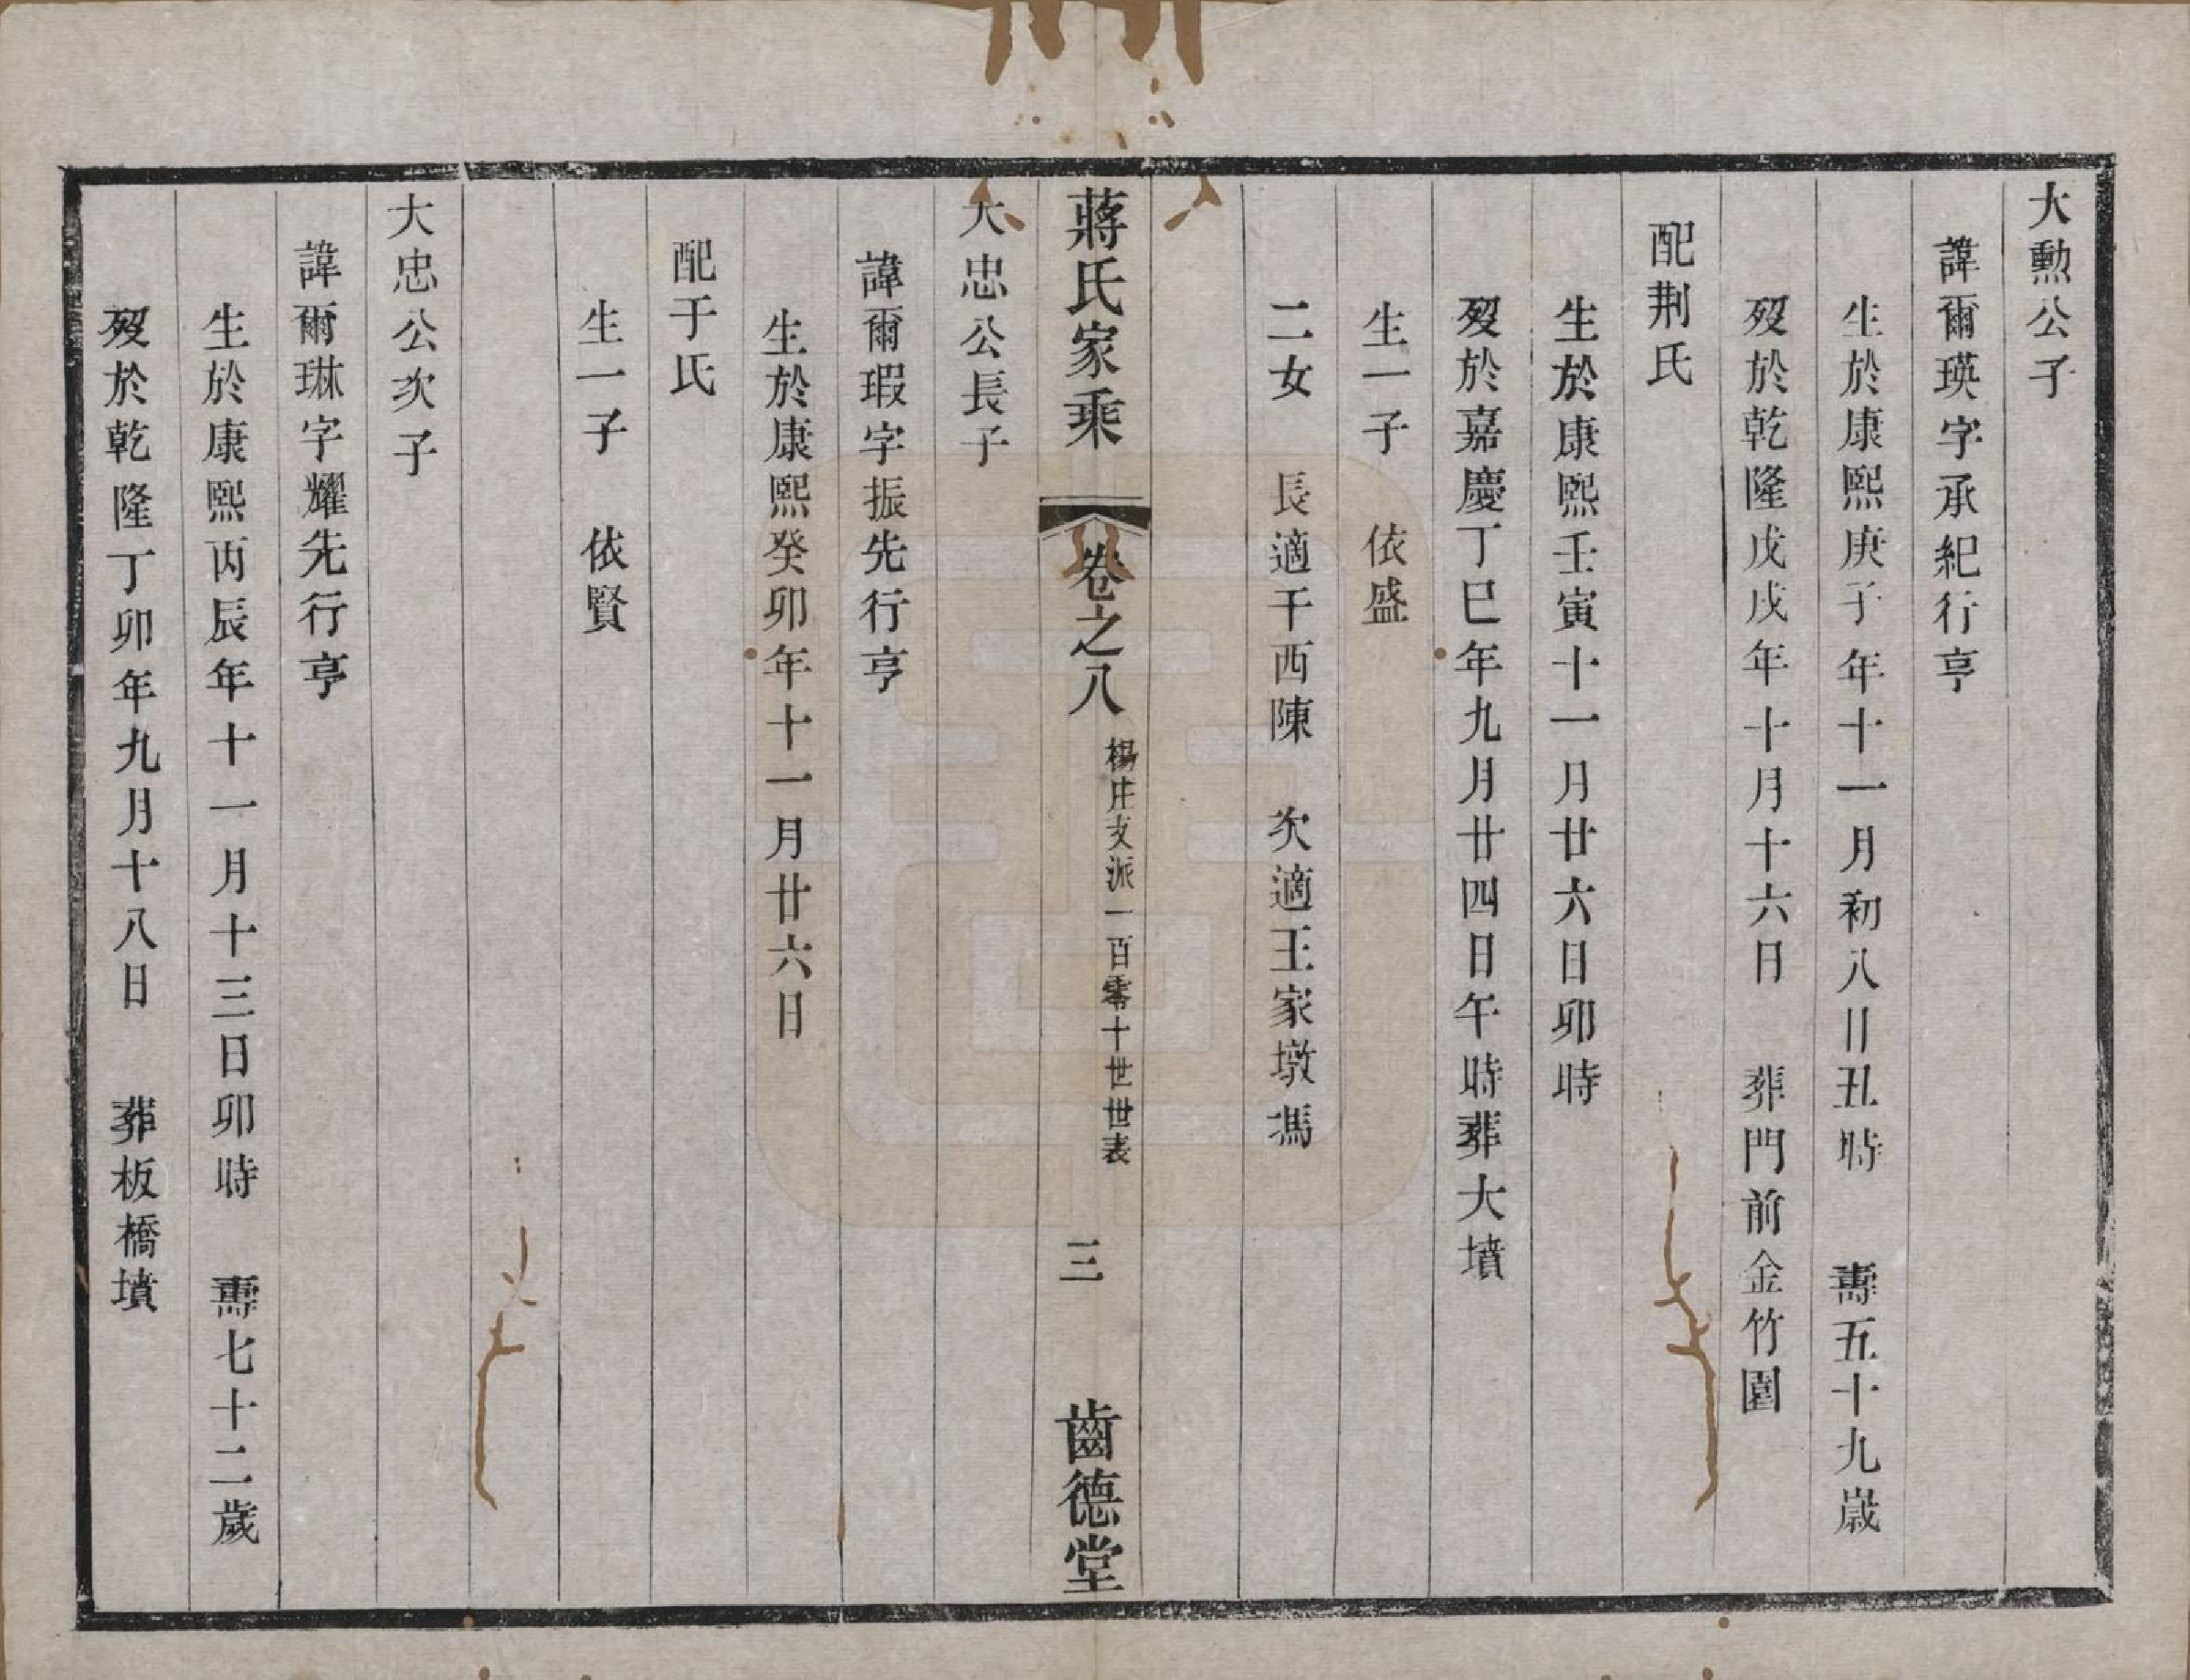 大勲公子
諱爾瑛字承紀行亨
生於康熙庚子年十一月初八日丑時　壽五十九歲
歿於乾隆戊戌年十月十六日　葬門前金竹園
配荆氏
生於康熙壬寅十一月廿六日卯時
歿於嘉慶丁巳年九月廿四日午時葬大墳
生一子　依盛
二女　長適干西陳　次適王家墩馮
蔣氏家乘　卷之八　楊庄支派一百零十世世表　三　齒德堂
大忠公長子
諱爾瑕字振先行亨
生於康熙癸卯年十一月廿六日
配于氏
生一子　依賢
大忠公次子
諱爾琳字耀先行亨
生於康熙丙辰年十一月十三日卯時　壽七十二歲
歿於乾隆丁卯年九月十八日　葬板橋墳